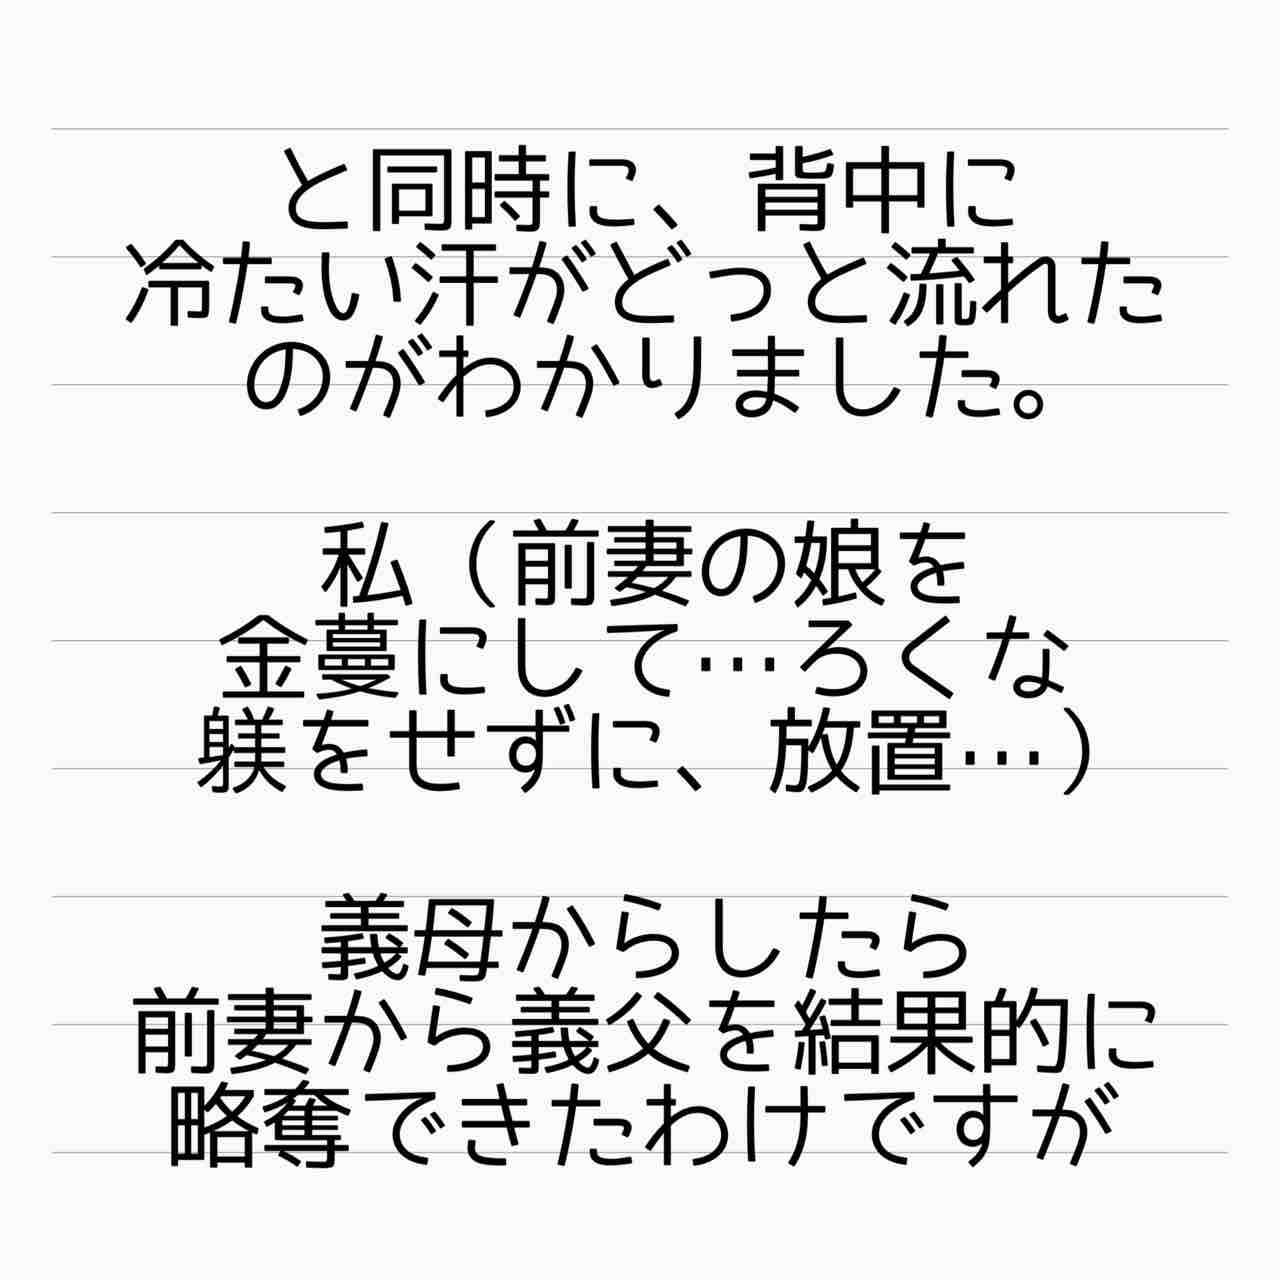 と同時に、背中に
冷たい汗がどっと流れた
のがわかりました。
私（前妻の娘を
金蔓にして…ろくな
躾をせずに、放置…）
義母からしたら
前妻から義父を結果的に
略奪できたわけですが